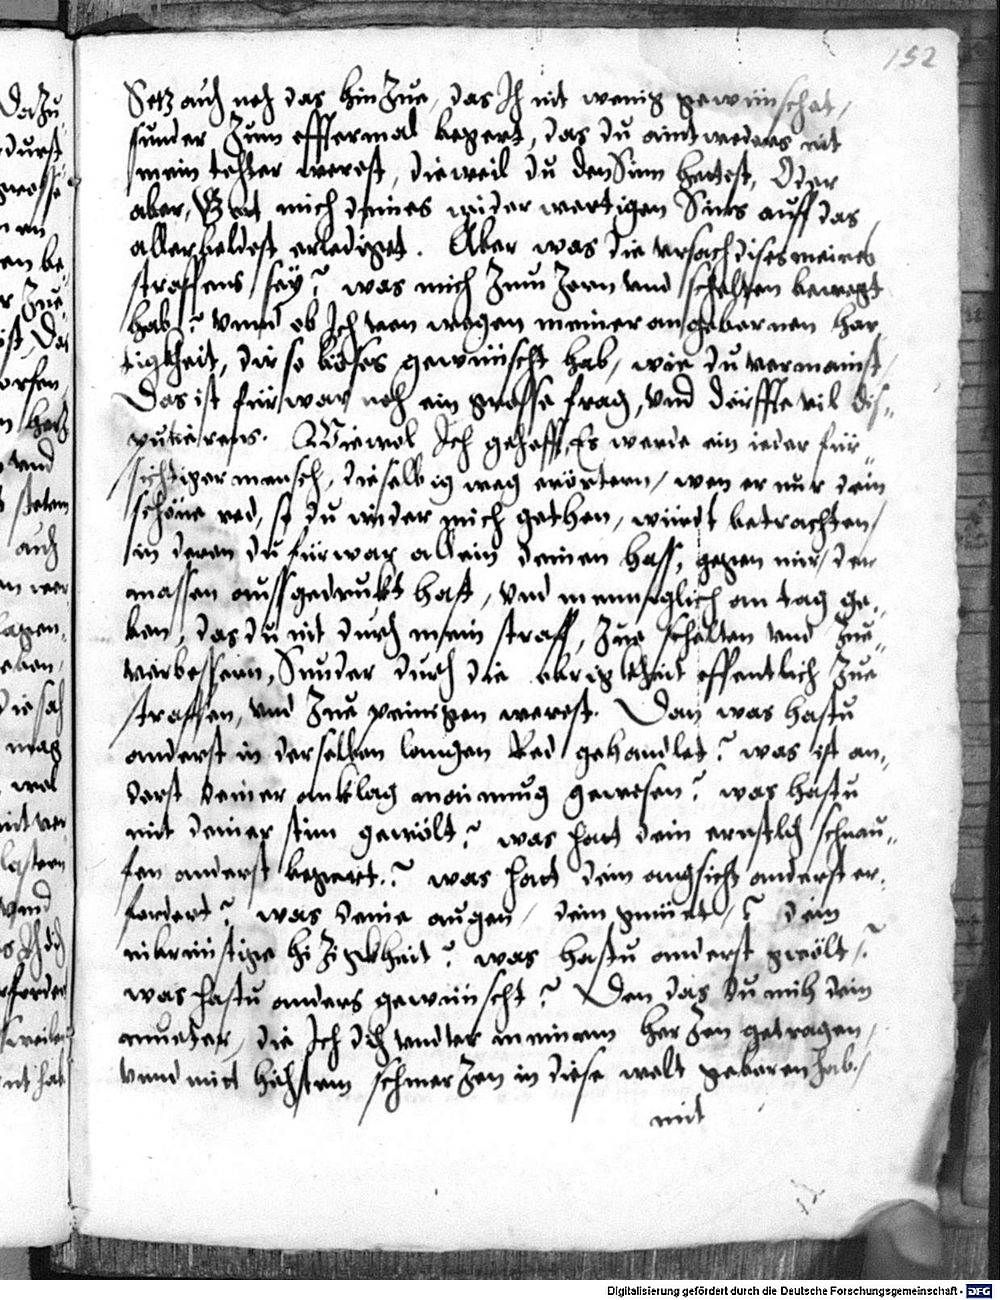 152
Setz auch noch das hinzue, das Ich nit wenig gewünschet,
sunder zum offtermal begert, das du aintweders nit
mein tochter werest, dieweil du den Sinn hettest, Oder
aber, Gott mich deines widerwertigen Sins auff das
allerbeldest erlediget. Aber was die ursach dises meines
straffens sey? was mich zum Zorn und schelten bewegt
hab? unnd ob Ich von wegen meiner angebornen har
tigkheit, dir so böses gewünscht hab, wie du vermainst,
Das ist fürwar noch ein grosse frag, und dörffte vil dis-
putierens. Wiewol Ich gehoff, Es werde ein ieder für
sichtiger mensch, dieselbig wag erörtern, wen er nur dein
schöne red, so du wider mich gethon, würdt betrachten,
in deren du fürwar allein deinen hass, gegen mir, der
massen aussgedruckt hast, und menniglich an tag ge-
ben, das du nit durch mein straff, zue schelten und zue
verbessern, Sunder durch die obrigkheit offentlich zue
straffen, und zue peinigen werest. Dan was hastu
anderst in derselben langen Red gehandlet? was ist an-
derst deiner anklag mainung gewesen? was hastu
mit deiner stim gewölt? was hatt dein ernstlich schnau-
fen anderst begert? was hatt dein angsicht anderst er-
fordert? was deine augen, dein gmüet? dein
inbrünstige hizigkheit? was hastu anderst gwölt?
was hastu anders gewünscht? Den das du mich dein
muetter, die Ich dich undter meinem herzen getragen,
unnd mit höchstem schmerzen in diese welt geboren hab,
mit
Digitalisierung gefördert durch die Deutsche Forschungsgemeinschaft - DFG